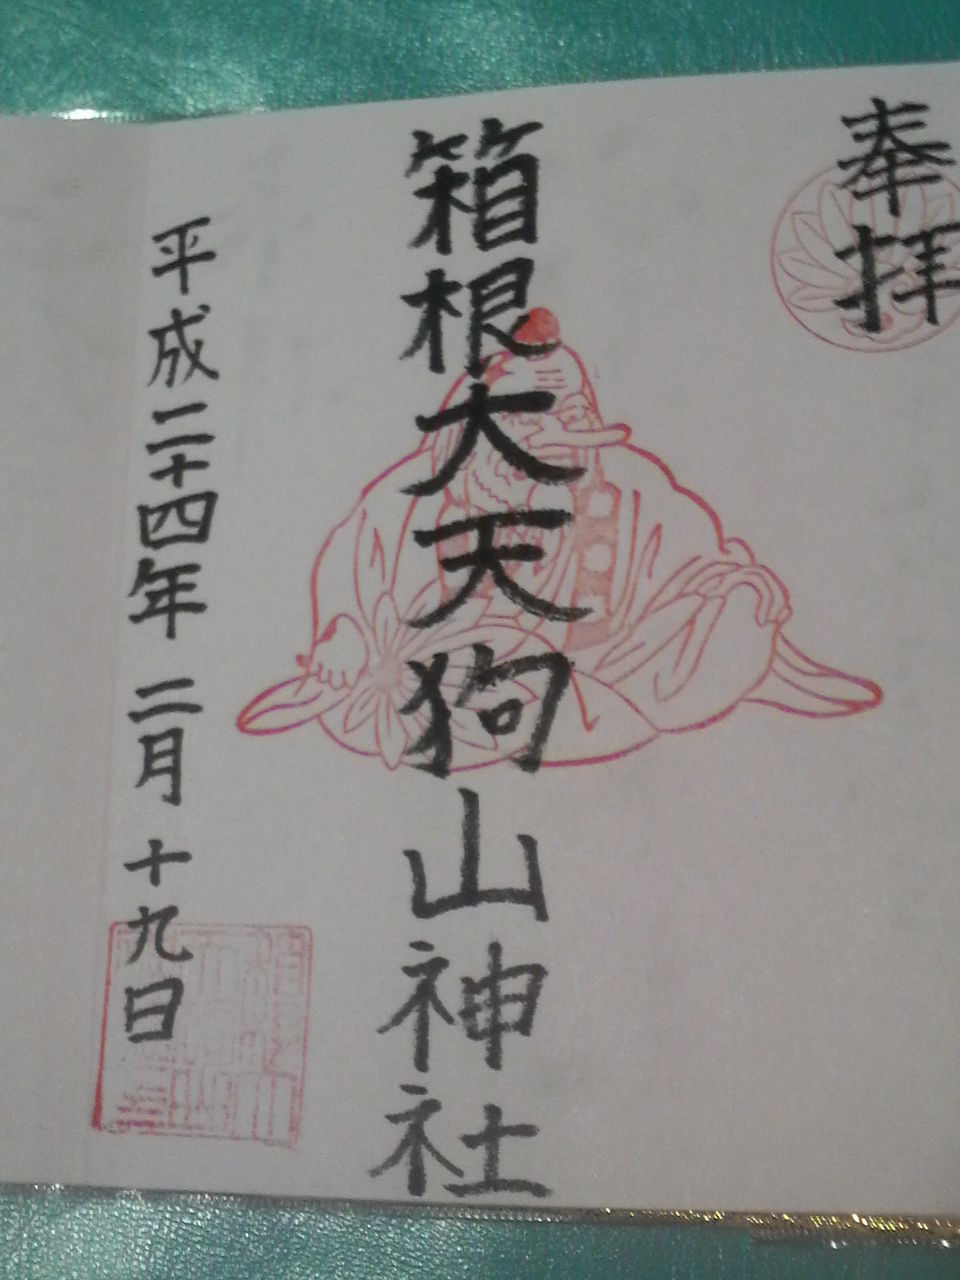 奉拝
箱根大天狗山神社
平成二十四年二月十九日